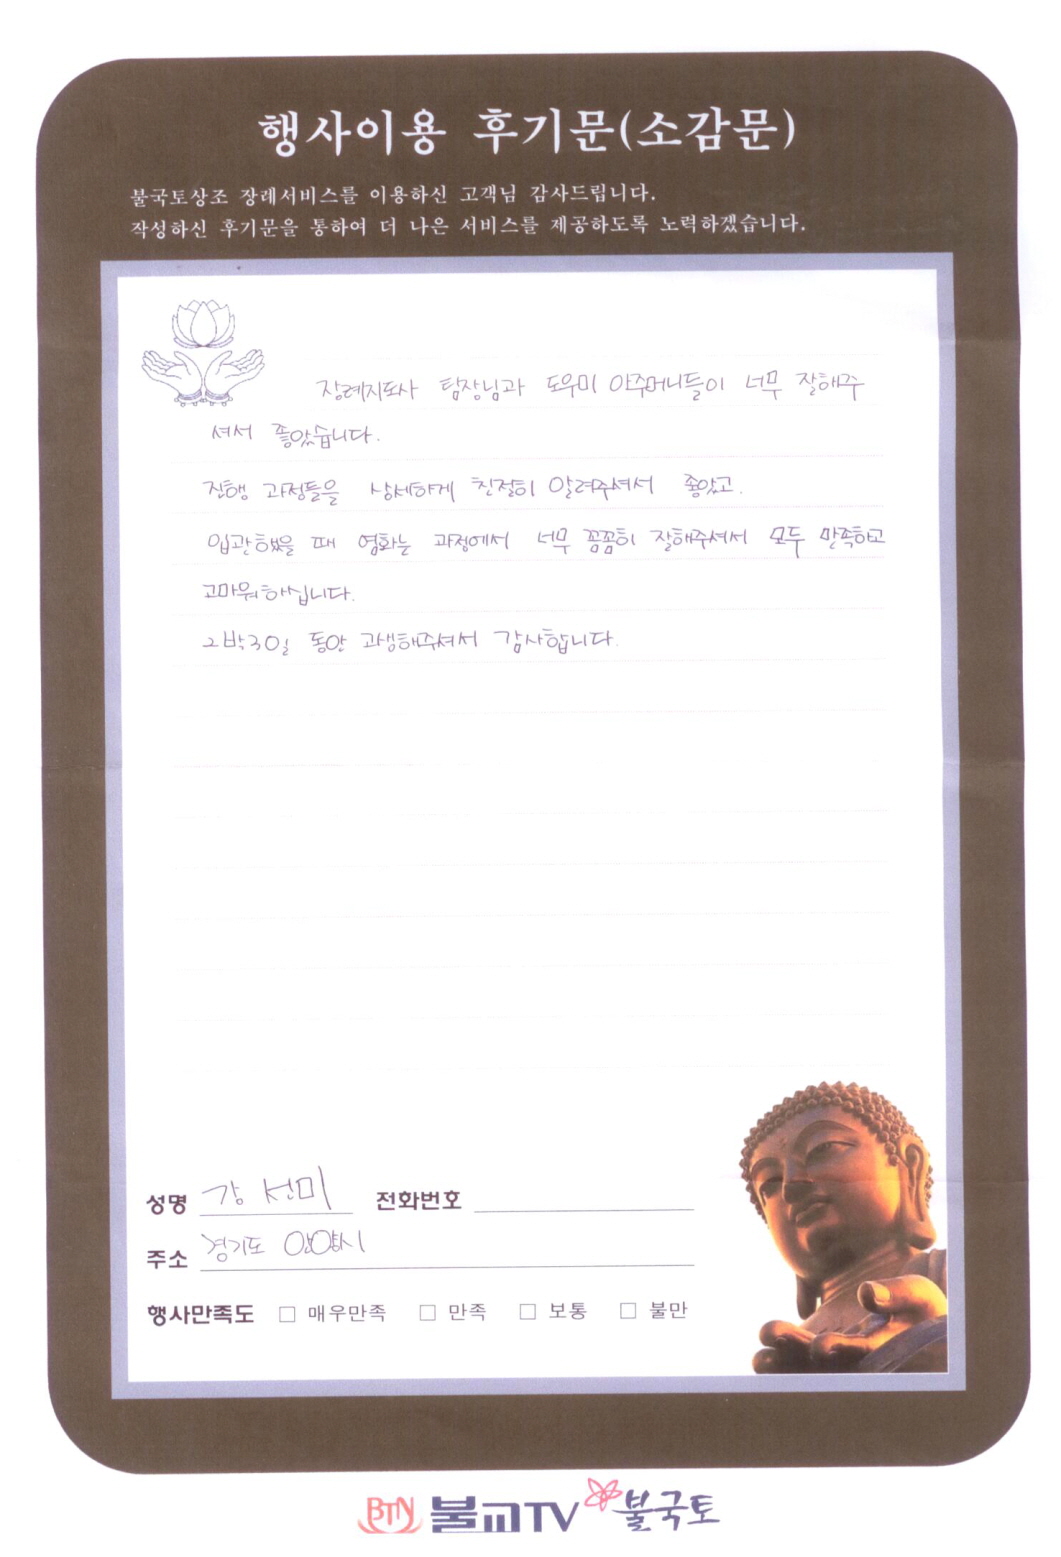 행사이용 후기문(소감문)
불국토상조 장례서비스를 이용하신 고객님 감사드립니다.
작성하신 후기문을 통하여 더 나은 서비스를 제공하도록 노력하겠습니다.
장례지도사 팀장님과 도우미 아주머니들이 너무 잘해주
셔서 좋았습니다.
진행 과정들을 상세하게 친절히 알려주셔서 좋았고.
입관했을 때 염화는 과정에서 너무 꼼꼼히 잘해주셔서 모두 만족하고
고마워하십니다.
2박3일 동안 고생해주셔서 감사합니다.
성명 강선미 전화번호
주소 경기도 안양시
행사만족도 □ 매우만족 □ 만족 □ 보통 □ 불만
BTN 불교TV 불국토